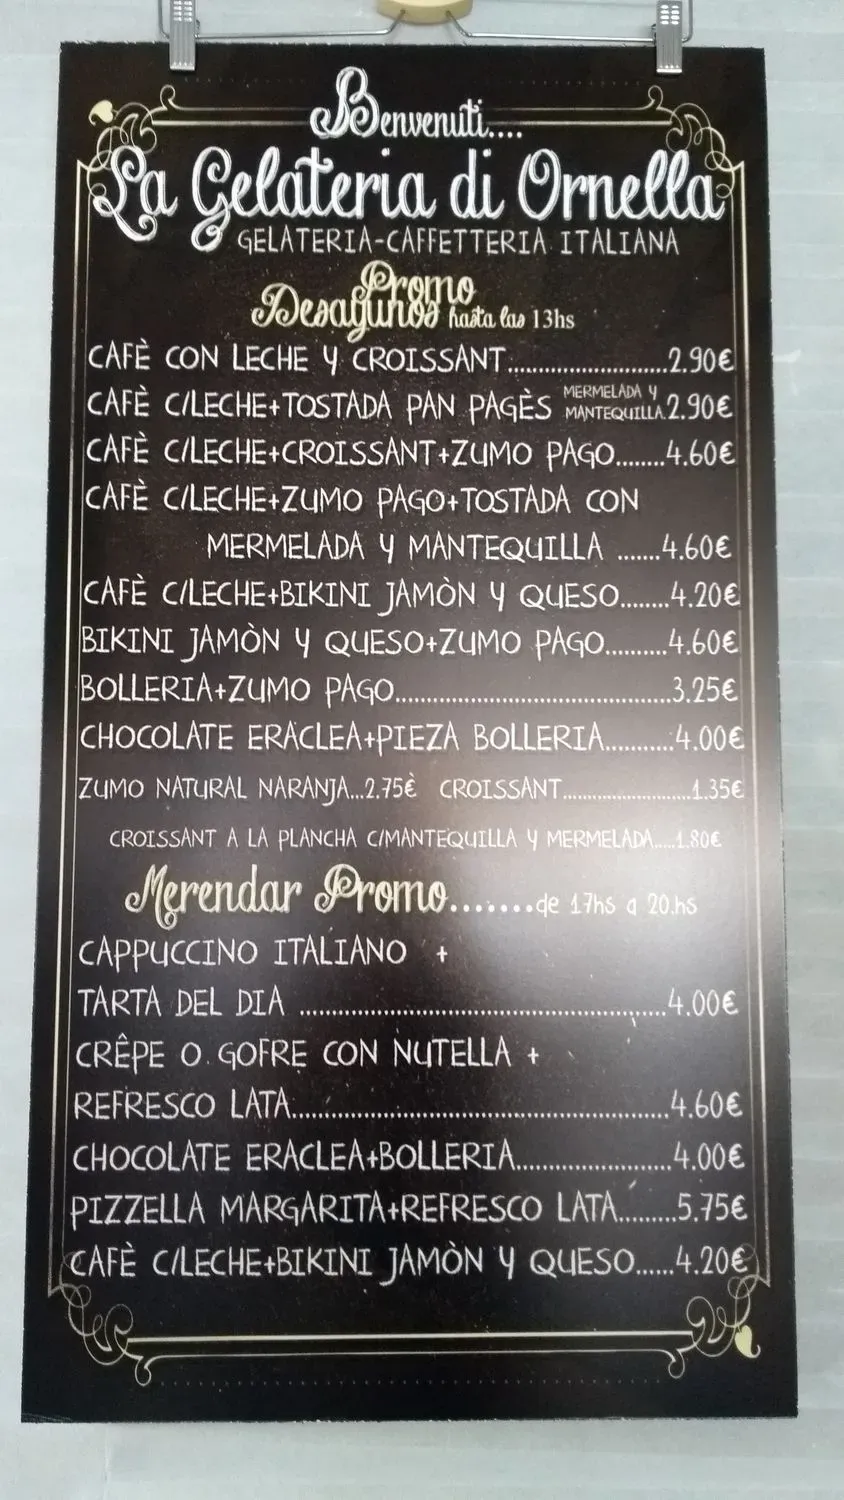 Benvenuti....
La Gelateria di Ornella
GELATERIA-CAFFETTERIA ITALIANA
Promo
Desayunos hasta las 13hs
CAFÈ CON LECHE Y CROISSANT..........................2.90€
CAFÈ C/LECHE+TOSTADA PAN PAGÈS MERMELADA Y MANTEQUILLA.2.90€
CAFÈ C/LECHE+CROISSANT+ZUMO PAGO........4.60€
CAFÈ C/LECHE+ZUMO PAGO+TOSTADA CON
MERMELADA Y MANTEQUILLA .......4.60€
CAFÈ C/LECHE+BIKINI JAMÒN Y QUESO........4.20€
BIKINI JAMÒN Y QUESO+ZUMO PAGO..........4.60€
BOLLERIA+ZUMO PAGO.............................................3.25€
CHOCOLATE ERACLEA+PIEZA BOLLERIA...........4.00€
ZUMO NATURAL NARANJA...2.75È CROISSANT..........................1.35€
CROISSANT A LA PLANCHA C/MANTEQUILLA Y MERMELADA.....1.80€
Merendar Promo........de 17hs a 20.hs
CAPPUCCINO ITALIANO +
TARTA DEL DIA ............................................................4.00€
CRÊPE O GOFRE CON NUTELLA +
REFRESCO LATA.............................................................4.60€
CHOCOLATE ERACLEA+BOLLERIA.........................4.00€
PIZZELLA MARGARITA+REFRESCO LATA.........5.75€
CAFÈ C/LECHE+BIKINI JAMÒN Y QUESO......4.20€